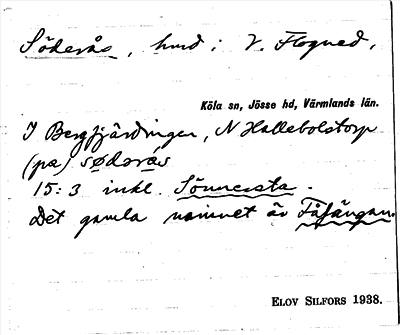 Söderås, hmd i V. Flogned,
Köla sn, Jösse hd, Värmlands län.
I Bergfjärdingen, N Hallebolstorp
(pa) sødərås
15:3 inkl. Sönnersta.
Det gamla namnet är Fåfängan.
ELOV SILFORS 1938.